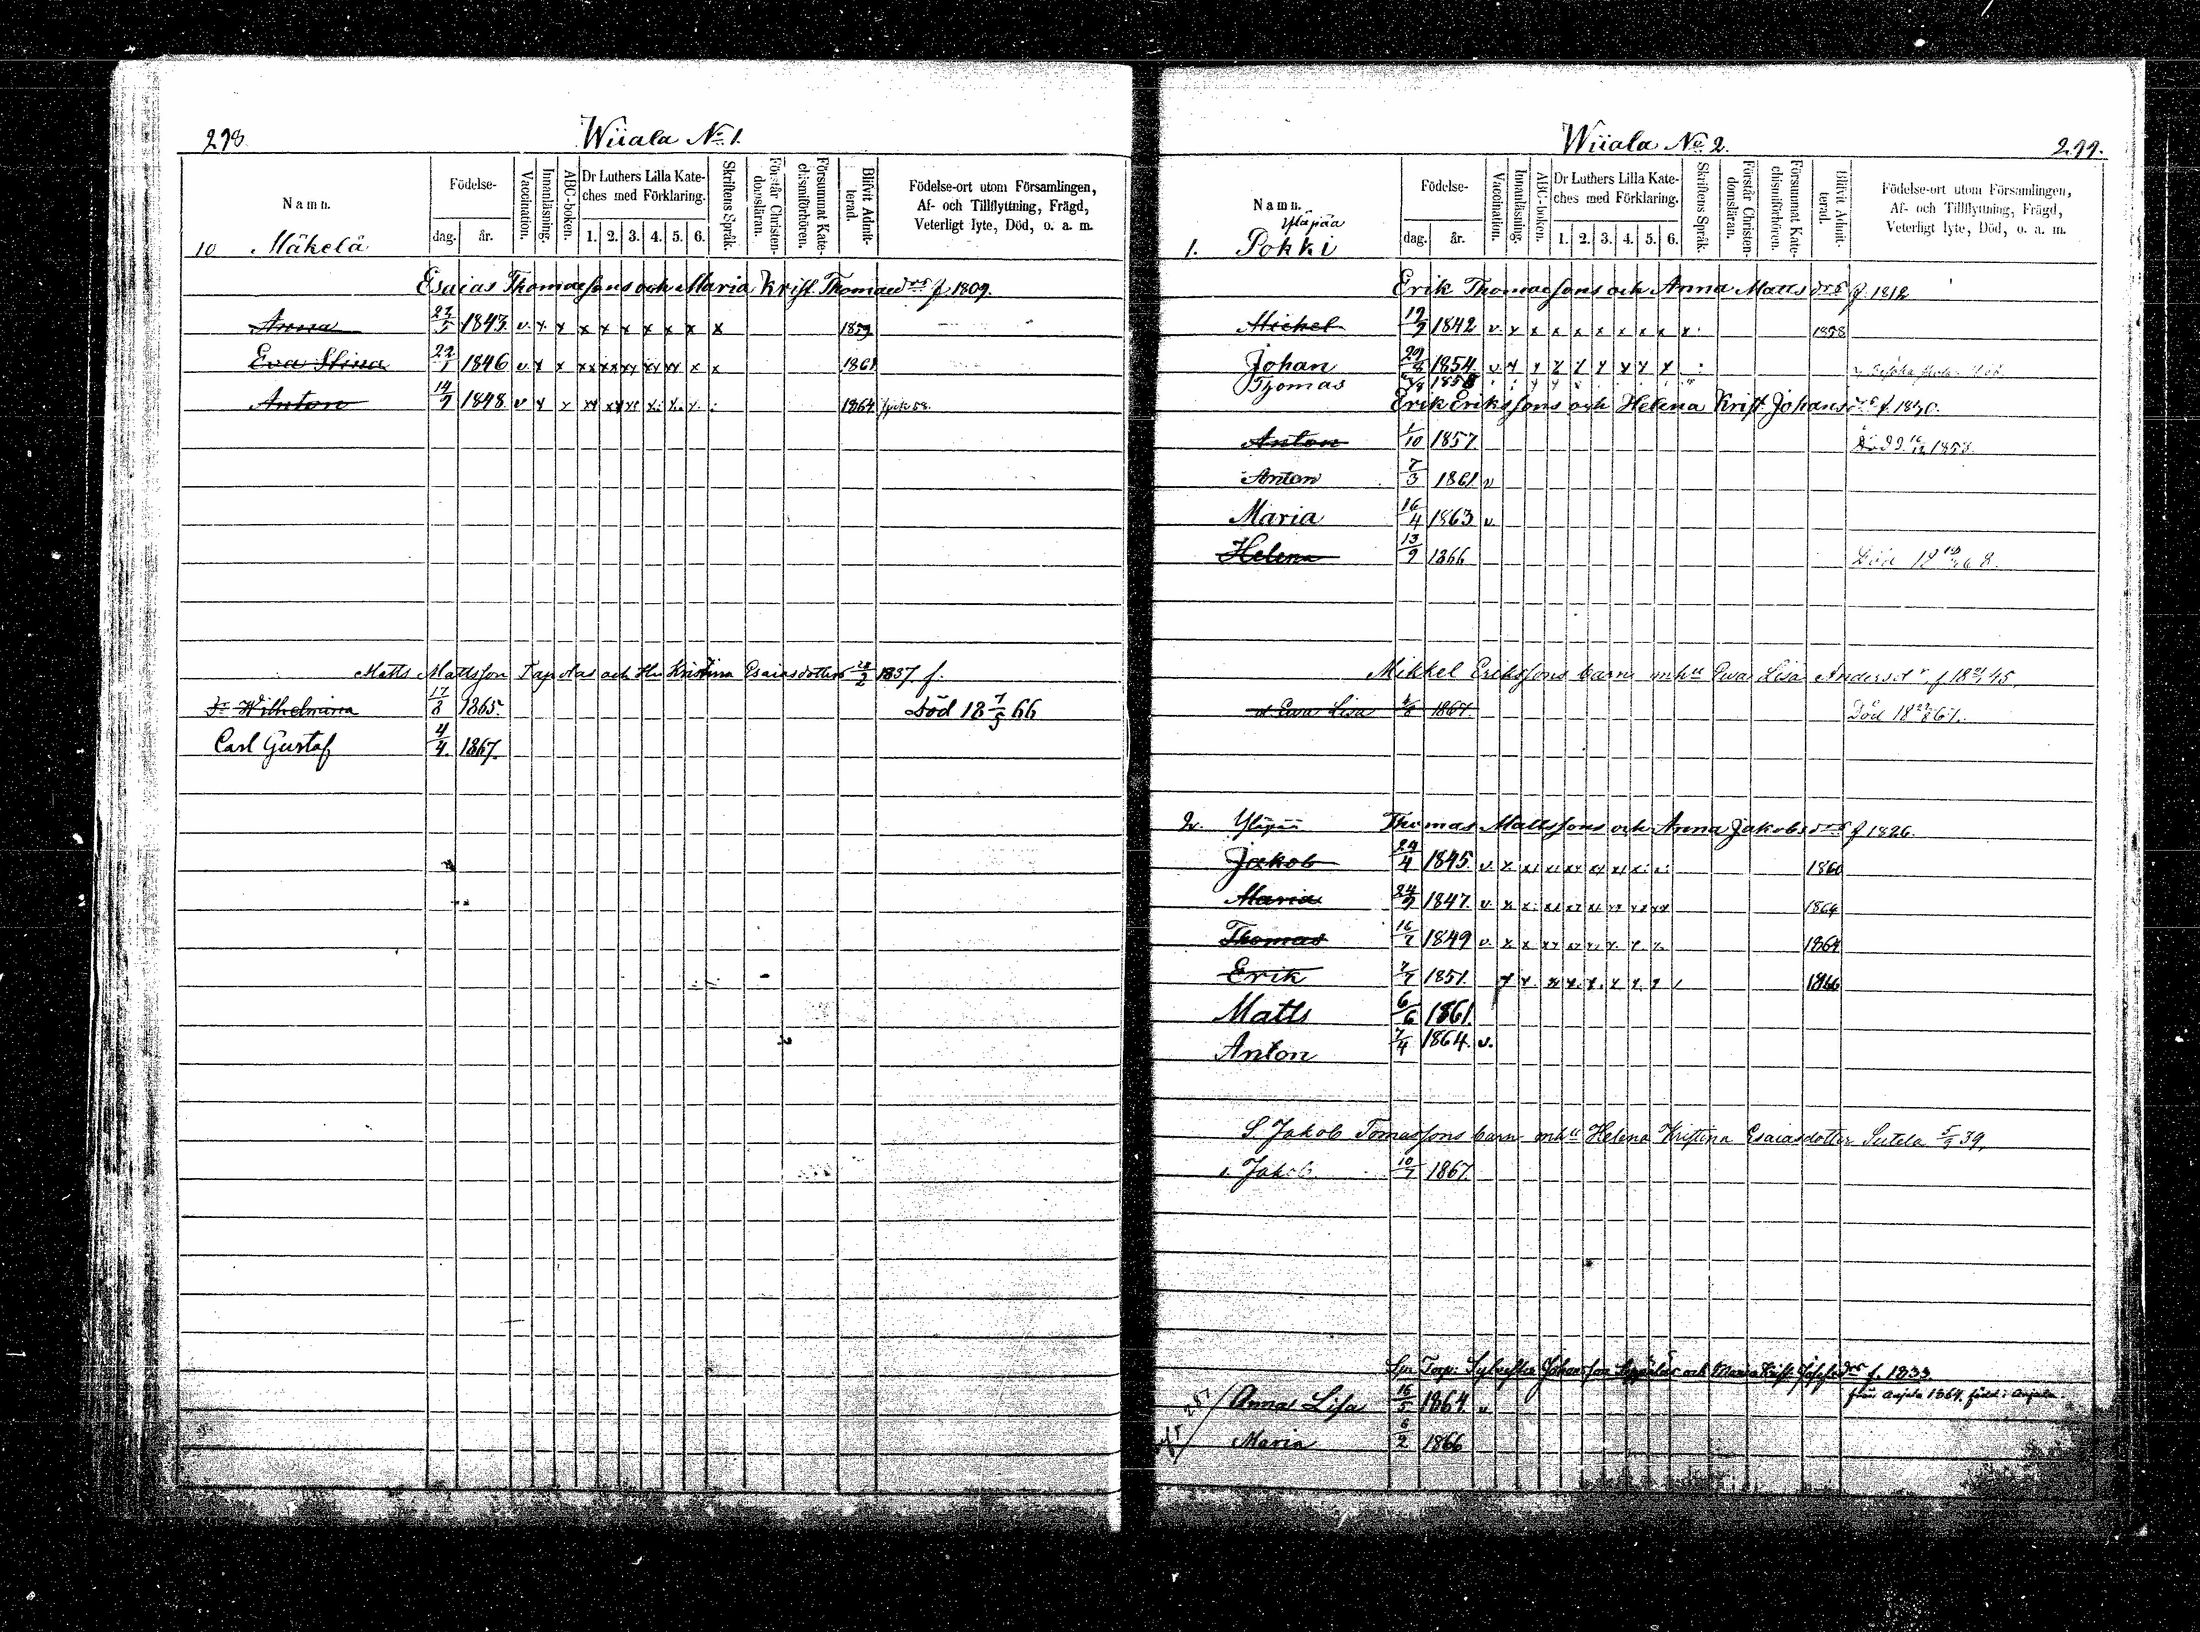 298
Wiiala No 1.
Namn.
Födelse-
dag.
år.
Vaccination.
Innanläsning.
ABC-boken.
Dr Luthers Lilla Kate-
ches med Förklaring.
1. 2. 3. 4. 5. 6.
Skriftens Språk.
Förstår Christen-
domsläran.
Försummat Kate-
chismiförhören.
Blifvit Admit-
terad.
Födelse-ort utom Församlingen,
Af- och Tillflyttning, Frägd,
Veterligt lyte, Död, o. a. m.
10 Mäkelä
Esaias Thomassons och Maria Krist. Thomaedrs f 1809.
Anna 23/5 1843 v. x x x x x x x x x 1859
Eva Stina 22/1 1846 v x x xx xx xx xx xx x x 1861
Anton 14/9 1848 v x x xx xx xx x. x. x. 1864
Matts Mattsson och Hu Kristina Esaiasdotters 28/2 1837 f.
Wilhelmina 17/8 1865. Död 18 7/5 66
Carl Gustaf 4/4. 1867.
Wiiala No 2.
299.
Namn.
Födelse-
dag.
år.
Vaccination.
Innanläsning.
ABC-boken.
Dr Luthers Lilla Kate-
ches med Förklaring.
1. 2. 3. 4. 5. 6.
Skriftens Språk.
Förstår Christen-
domsläran.
Försummat Kate-
chismiförhören.
Blifvit Admit-
terad.
Födelse-ort utom Församlingen,
Af- och Tillflyttning, Frägd,
Veterligt lyte, Död, o. a. m.
Yläpää
1. Pokki
Erik Thomassons och Anna Matts drs f. 1812
Michel 19/9 1842 v. x x x x x x x x x. 1858
Johan 29/8 1854. v x x x x x x x x
Thomas 1858
Erik Erikssons och Helena Krist Johansdrs f. 1830.
Anton 1/10 1857. Död 1858.
Anton 7/3 1861 v
Maria 16/4 1863 v.
Helena 13/9 1866 Död 18 68.
Mikkel Erikssons barn m hu Ewa Lisa Andersdr. f 18 45.
d Ewa Lisa 1867. Död 18 67.
2. Yläpää Thomas Mattssons och Anna Jakobsdrs f 1826.
Jakob 29/4 1845. v. x 1860
Maria 24/9 1847. v. x 1864
Thomas 16/7 1849 v. x x 1864
Erik 7/7 1851. x x. 1866
Matts 6/6 1861.
Anton 7/4 1864. v.
S Jakob Tomassons barn m hu Helena Kristina Esaiasdotter Sutela 5/9 39,
s. Jakob 10/7 1867.
Torp. Sylvester Johansson och Maria Krist. f. 1833.
från Anjala 1864. född i Anjala.
Anna Lisa 16/5 1864. v
Maria 6/2 1866